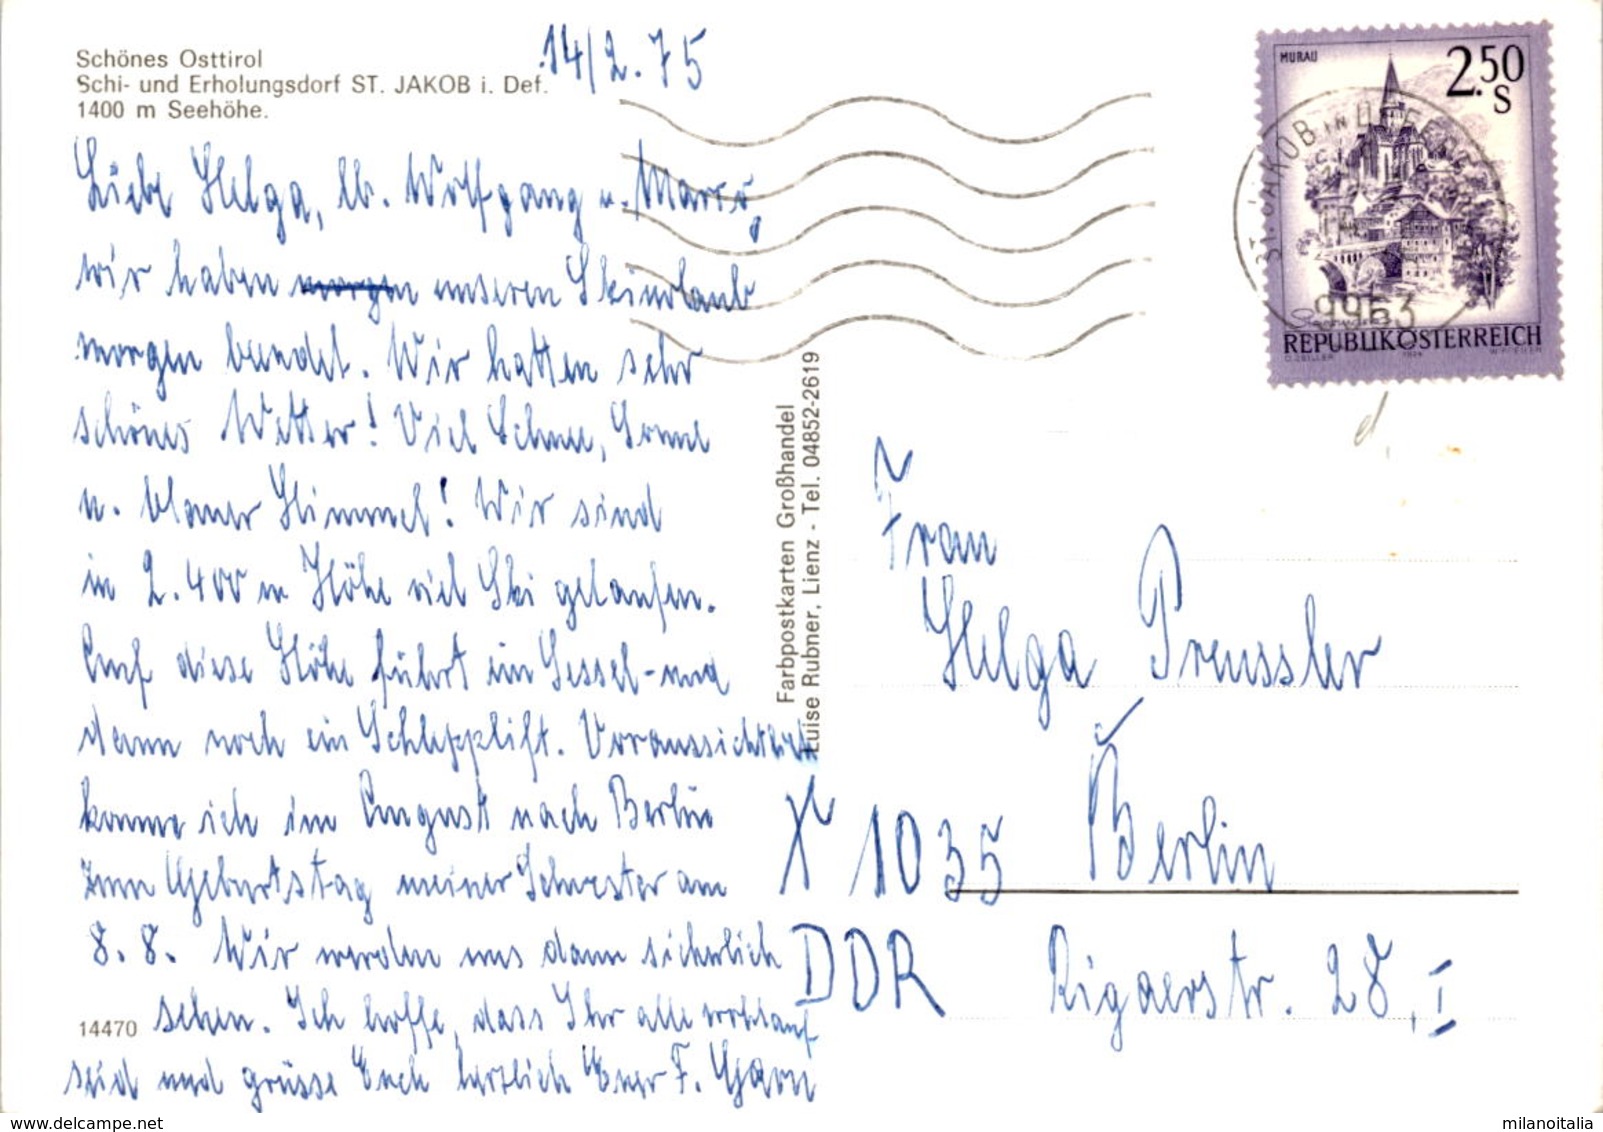 Schönes Osttirol
Schi- und Erholungsdorf ST. JAKOB i. Def.
1400 m Seehöhe.
14/2.75
Liebe Helga, lb. Wolfgang u. Marro,
wir haben morgen unseren Skiurlaub
morgen beendet. Wir hatten sehr
schönes Wetter! Viel Schnee, Sonne
u. blauer Himmel! Wir sind
in 2.400 m Höhe viel Ski gelaufen.
Auf diese Höhe führt ein Sessel- und
dann noch ein Schlepplift. Voraussichtlich
komme ich im August nach Berlin
zum Geburtstag meiner Schwester am
8.8. Wir werden uns dann sicherlich
sehen. Ich hoffe, dass Ihr alle wohlauf
seid und grüsse Euch herzlich Euer F.
14470
Farbpostkarten Großhandel
Luise Rubner, Lienz - Tel. 04852-2619
MURAU
2.50
S
ST. JAKOB IN DEFEREGGEN
9963
REPUBLIK ÖSTERREICH
Frau
Helga Preussler
X 1035 Berlin
DDR Rigaerstr. 28, I
www.delcampe.net
milanoitalia